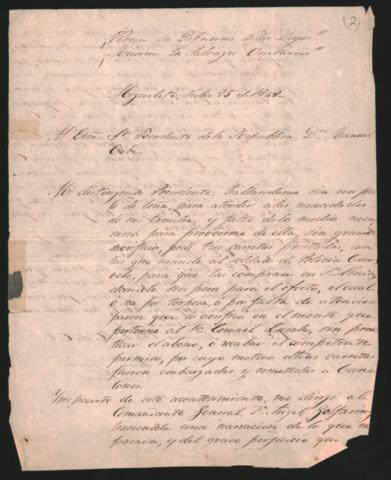 (2)
"Vivan los Defensores de las Leyes"
"Mueran los Salvages Unitarios"
Miguelete, Julio 25 de 1848.
Al Exmo. Sor. Presidente de la Republica Dn. Manuel
Oribe.
Mi distinguido Presidente: hallandome sin un pa
lo de leña, para atender a las necesidades
de mi familia, y falto de los medios nece
sarios para procurarme de ella, sin grande
sacrificio, pedi tres carretas prestadas, con
las que mandé al soldado de Policia
para que las comprase en Sta. Lucia,
dandole tres pesos para el efecto, el cual
ó sea por torpeza, ó por falta de atencion
parece que lo verificó en el monte que
pertenece al Sr. Coronel Lasala, sin
el abono, ó recabar el competente
permiso, por cuyo motivo dichas carretas
fueron embargadas y remitidas a Cane
lones.
Impuesto de este acontecimiento, me dirigí al
Comandante General Dn. Angel
haciendole una narracion de lo que
pasaba, y del grave perjuicio que